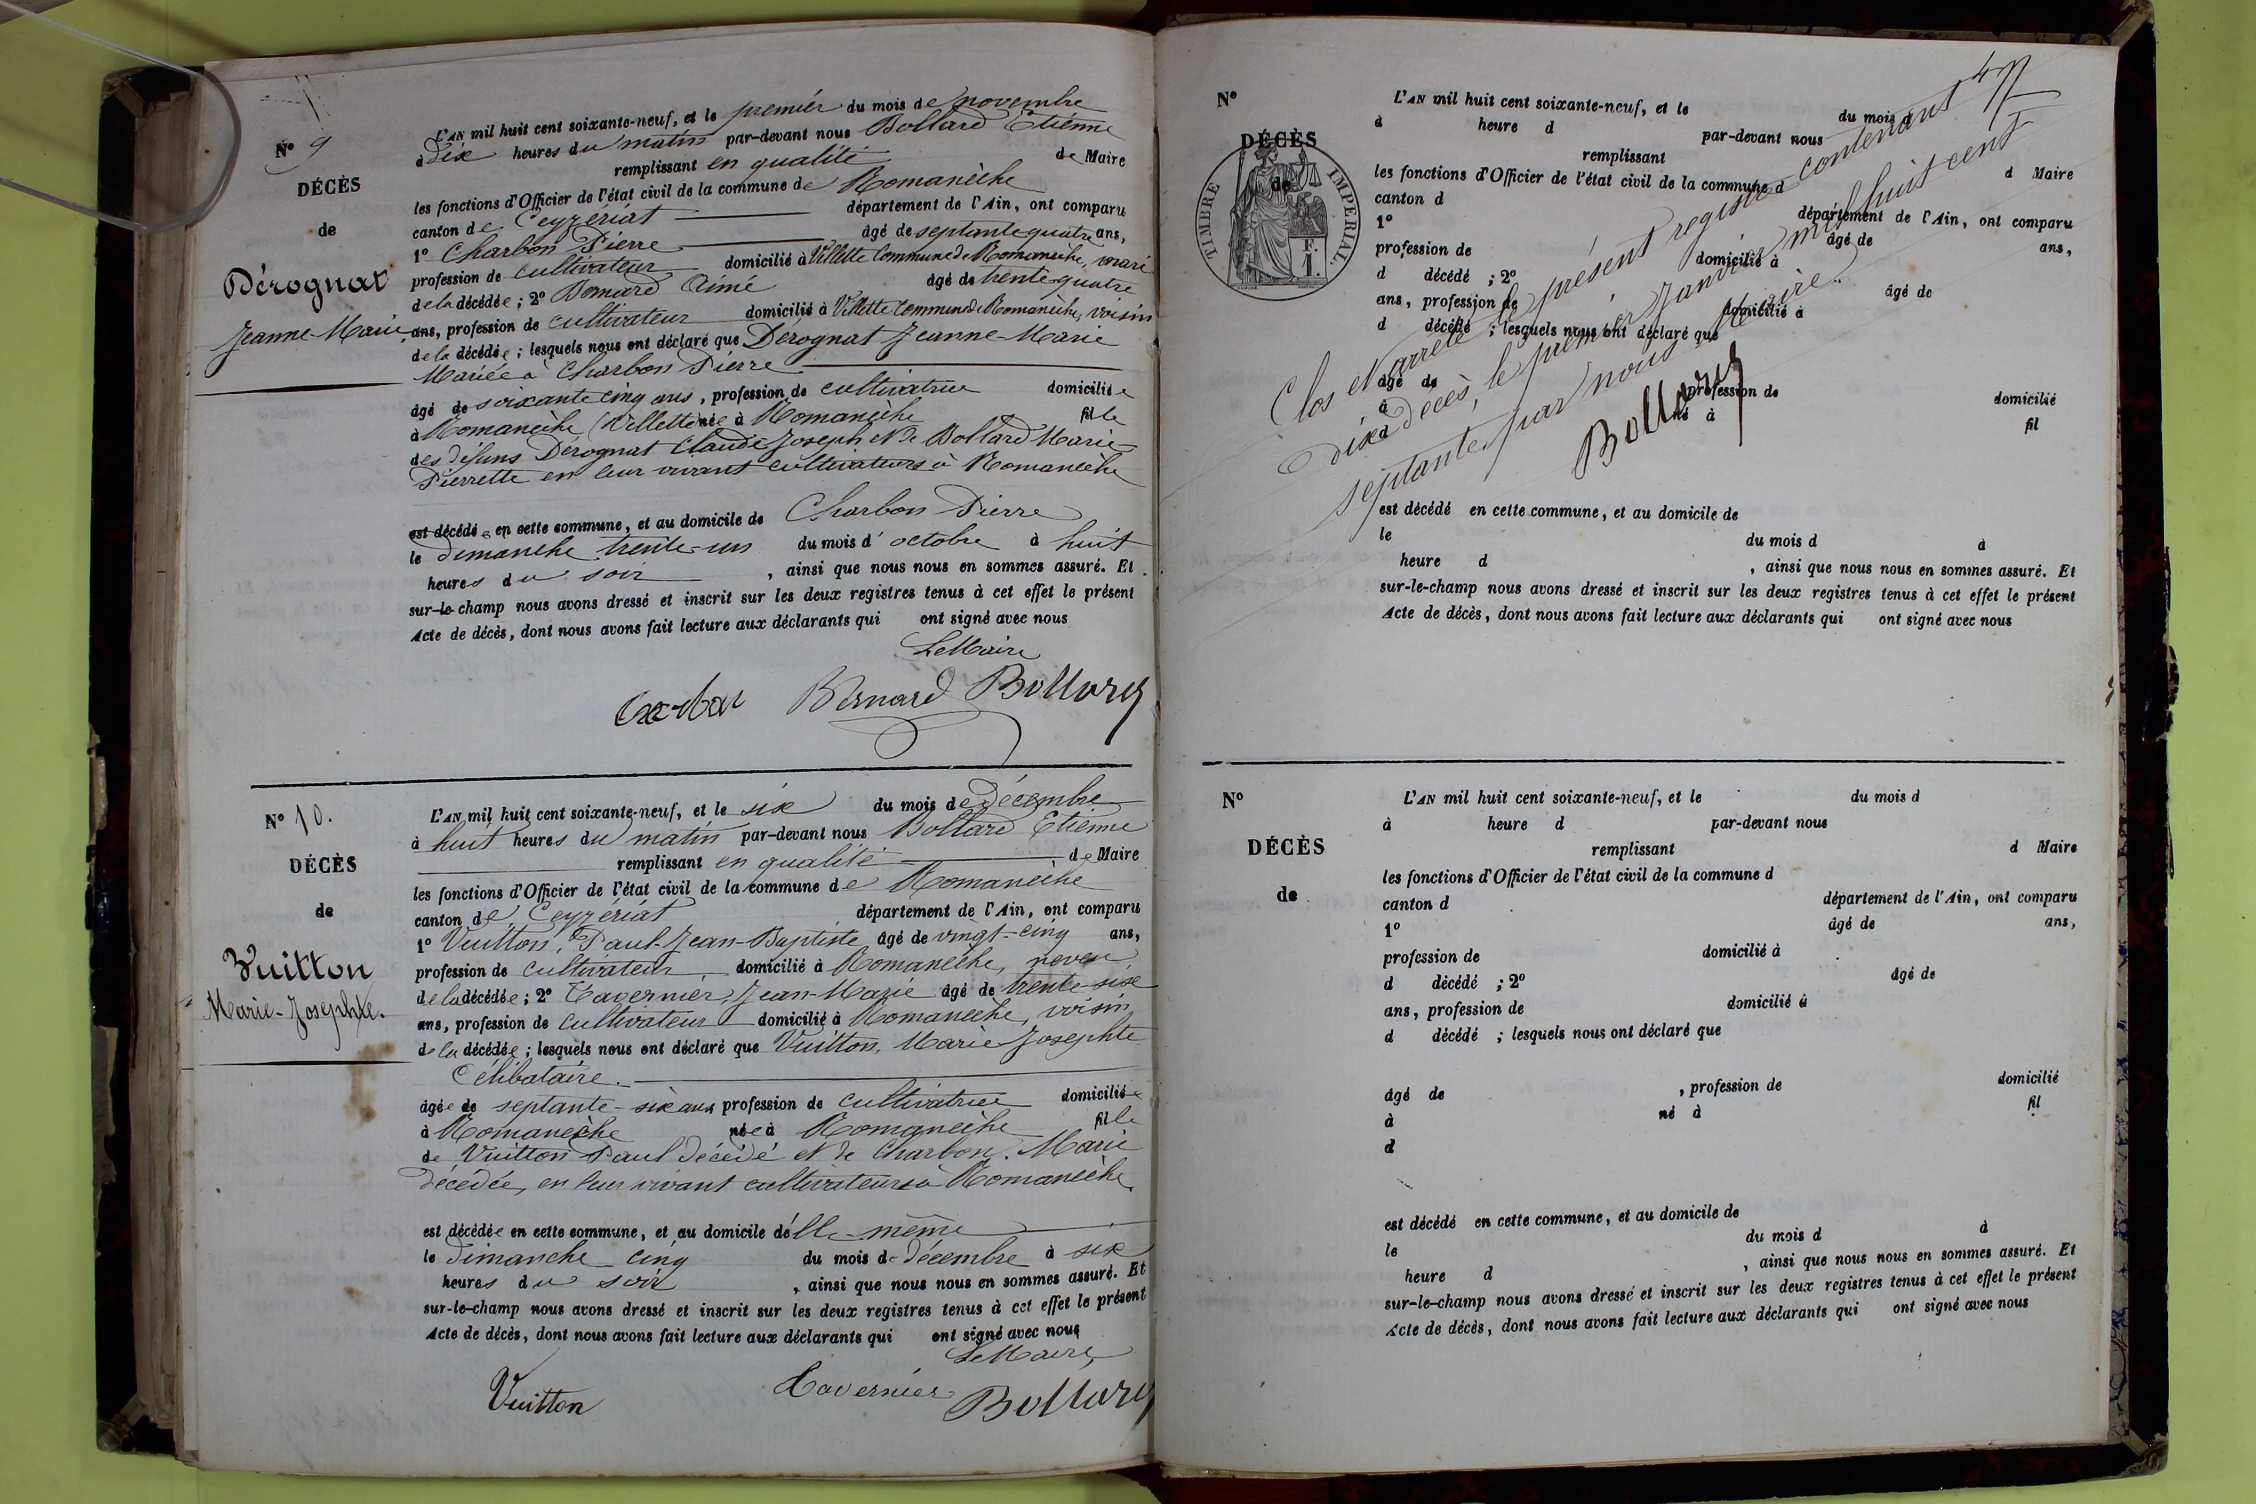 Nº 9
DÉCÈS
de
Dérognat
Jeanne-Marie
L'AN mil huit cent soixante-neuf, et le premier du mois de novembre
à dix heures du matin par-devant nous Bollard Etienne
remplissant en qualité de Maire
les fonctions d'Officier de l'état civil de la commune de Romanèche
canton de Ceyzériat département de l'Ain, ont comparu
1º Charbon Pierre âgé de septante quatre ans,
profession de cultivateur domicilié à Villette Commune de Romanèche, mari
de la décédée ; 2º Bernard Aimé âgé de trente-quatre
ans, profession de cultivateur domicilié à Villette Commune de Romanèche, voisin
de la décédée ; lesquels nous ont déclaré que Dérognat Jeanne-Marie
Mariée à Charbon Pierre
âgé de soixante cinq ans, profession de cultivatrice domiciliée
à Romanèche (Villette) née à Romanèche fille
des défuns Dérognat Claude Joseph et de Bollard Marie-
Pierrette en leur vivant cultivateurs à Romanèche
est décédée en cette commune, et au domicile de Charbon Pierre
le dimanche trente-un du mois d'octobre à huit
heures du soir, ainsi que nous nous en sommes assuré. Et
sur-le-champ nous avons dressé et inscrit sur les deux registres tenus à cet effet le présent
Acte de décès, dont nous avons fait lecture aux déclarants qui ont signé avec nous
Le Maire
Bernard Bollard
Nº 10.
DÉCÈS
de
Vuitton
Marie-Josephte.
L'AN mil huit cent soixante-neuf, et le six du mois de Décembre
à huit heures du matin par-devant nous Bollard Etienne
remplissant en qualité de Maire
les fonctions d'Officier de l'état civil de la commune de Romanèche
canton de Ceyzériat département de l'Ain, ont comparu
1º Vuitton, Paul-Jean-Baptiste âgé de vingt-cinq ans,
profession de cultivateur, domicilié à Romanèche, neveu
de la décédée ; 2º Tavernier, Jean-Marie âgé de trente-six
ans, profession de cultivateur domicilié à Romanèche, voisin
de la décédée ; lesquels nous ont déclaré que Vuitton, Marie Josephte
Célibataire.
âgée de septante-six ans profession de cultivatrice domiciliée
à Romanèche née à Romanèche fille
de Vuitton Paul décédé et de Charbon. Marie
décédée, en leur vivant cultivateurs à Romanèche.
est décédée en cette commune, et au domicile d'elle-même
le dimanche cinq du mois de décembre à six
heures du soir, ainsi que nous nous en sommes assuré. Et
sur-le-champ nous avons dressé et inscrit sur les deux registres tenus à cet effet le présent
Acte de décès, dont nous avons fait lecture aux déclarants qui ont signé avec nous
Le Maire,
Vuitton Tavernier Bollard
Nº
DÉCÈS
de
TIMBRE IMPERIAL.
F.
1.
L'AN mil huit cent soixante-neuf, et le du mois d
à heure d par-devant nous
remplissant d Maire
les fonctions d'Officier de l'état civil de la commune d
canton d département de l'Ain, ont comparu
1º âgé de ans,
profession de domicilié à
d décédé ; 2º âgé de
ans, profession de domicilié à
d décédé ; lesquels nous ont déclaré que
âgé de profession de domicilié
à né à fil
d
est décédé en cette commune, et au domicile de
le du mois d à
heure d , ainsi que nous nous en sommes assuré. Et
sur-le-champ nous avons dressé et inscrit sur les deux registres tenus à cet effet le présent
Acte de décès, dont nous avons fait lecture aux déclarants qui ont signé avec nous
Clos et arrêté le présent registre contenant
dix décès, le premier Janvier mil huit cent
septante, par nous Maire.
Bollard
Nº
DÉCÈS
de
L'AN mil huit cent soixante-neuf, et le du mois d
à heure d par-devant nous
remplissant d Maire
les fonctions d'Officier de l'état civil de la commune d
canton d département de l'Ain, ont comparu
1º âgé de ans,
profession de domicilié à
d décédé ; 2º âgé de
ans, profession de domicilié à
d décédé ; lesquels nous ont déclaré que
âgé de , profession de domicilié
à né à fil
d
est décédé en cette commune, et au domicile de
le du mois d à
heure d , ainsi que nous nous en sommes assuré. Et
sur-le-champ nous avons dressé et inscrit sur les deux registres tenus à cet effet le présent
Acte de décès, dont nous avons fait lecture aux déclarants qui ont signé avec nous